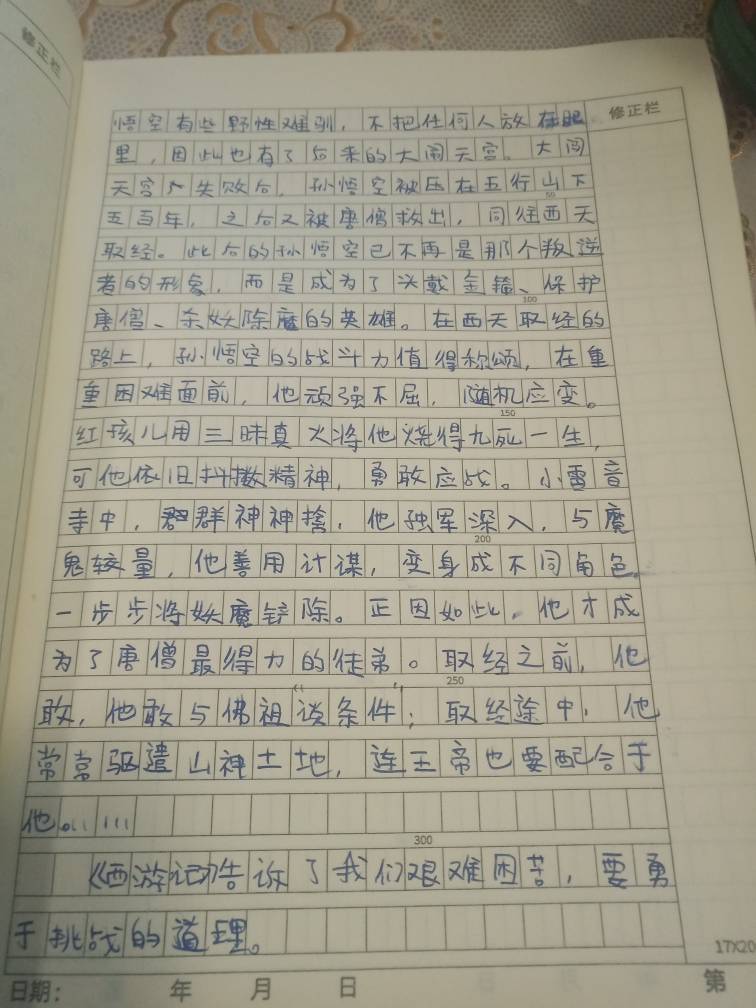 修正栏
修正栏
悟空有些野性难驯，不把任何人放在眼
里，因此也有了后来的大闹天宫。大闹
天宫失败后，孙悟空被压在五行山下
50
五百年，之后又被唐僧救出，同往西天
取经。此后的孙悟空已不再是那个叛逆
者的形象，而是成为了头戴金箍、保护
100
唐僧、杀妖除魔的英雄。在西天取经的
路上，孙悟空的战斗力值得称颂，在重
重困难面前，他顽强不屈，随机应变。
150
红孩儿用三昧真火将他烧得九死一生，
可他依旧抖擞精神，勇敢应战。小雷音
寺中，群神神擒，他独军深入，与魔
200
鬼较量，他善用计谋，变身成不同角色，
一步步将妖魔铲除。正因如此，他才成
为了唐僧最得力的徒弟。取经之前，他
250
敢，他敢与佛祖“谈条件”；取经途中，他
常常驱遣山神土地，连王帝也要配合于
他。……
300
《西游记》告诉了我们艰难困苦，要勇
于挑战的道理。
17X20
日期： 年 月 日 第